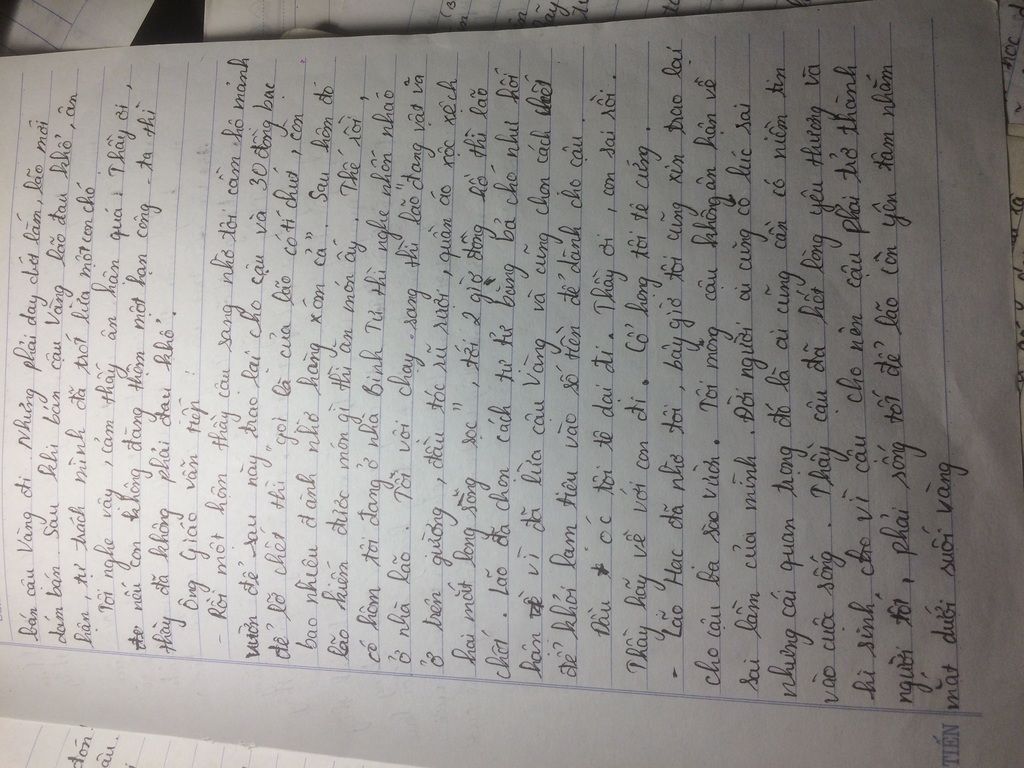 bán cậu Vàng đi. Nhưng phải day dứt lắm, lão mới
dám bán. Sau khi bán cậu Vàng lão đau khổ, ân
hận, tự trách mình đã trót lừa một con chó
Tôi nghe vậy, cảm thấy ân hận quá. Thầy ơi,
nếu con không đăng thêm một hạn công ta thì
thầy đã không phải đau khổ.
Ông Giáo vẫn tiếp:
- Rồi một hôm thầy cậu sang nhờ tôi cầm hộ mảnh
vườn để sau này trao lại cho cậu và 30 đồng bạc
để lỡ chết thì "gọi là của lão có tí chút, còn
bao nhiêu đành nhờ hàng xóm cả". Sau hôm đó
lão kiếm được món gì thì ăn món ấy. Thế rồi,
có hôm tôi đang ở nhà Binh Tư thì nghe nhốn nháo
ở nhà lão. Tôi vội chạy sang thì lão "đang vật vã
ở trên giường, đầu tóc rũ rượi, quần áo xộc xệch
hai mắt long sòng sọc", tới 2 giờ đồng hồ thì lão
chết. Lão đã chọn cách tự tử bằng bả chó như hối
hận vì đã lừa cậu Vàng và cũng chọn cách chết
để khỏi lạm tiêu vào số tiền để dành cho cậu.
Đầu óc tôi tê dại đi. Thầy ơi, con sai rồi.
Thầy hãy về với con đi. Cổ họng tôi tê cứng.
- Lão Hạc đã nhờ tôi, bây giờ tôi cũng xin trao lại
cho cậu ba sào vườn. Tôi mong cậu không ân hận về
sai lầm của mình. Đời người ai cũng có lúc sai
nhưng cái quan trọng đó là ai cũng cần có niềm tin
vào cuộc sống. Thầy cậu đã hết lòng yêu thương và
hi sinh vì cậu cho nên cậu phải trở thành
người tốt, phải sống tốt để lão còn yên tâm nhắm
mắt dưới suối vàng
TIẾN